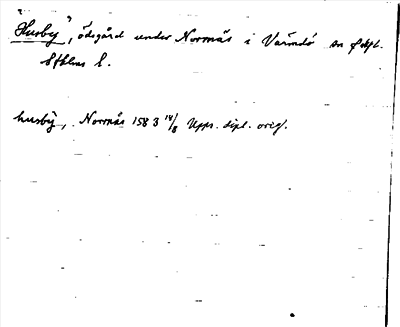 "Husby", ödegård under Norrnäs i Värmdö sn f dipl.
Sthlms l.
husby, Norrnäs 1583 14/8 Upps. dipl. orig.